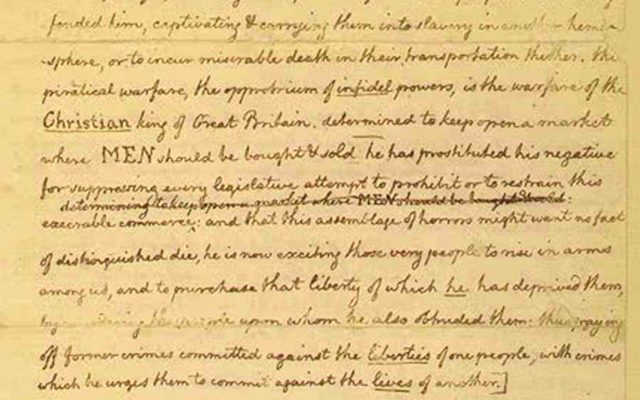 fended him, captivating & carrying them into slavery in another hemi-
-sphere, or to incur miserable death in their transportation thither. this
piratical warfare, the opprobrium of infidel powers, is the warfare of the
Christian king of Great Britain. determined to keep open a market
where MEN should be bought & sold he has prostituted his negative
for suppressing every legislative attempt to prohibit or to restrain this
determining to keep open a market where MEN should be bought & sold:
execrable commerce: and that this assemblage of horrors might want no fact
of distinguished die, he is now exciting those very people to rise in arms
among us, and to purchase that liberty of which he has deprived them,
by murdering the people upon whom he also obtruded them: thus paying
off former crimes committed against the liberties of one people, with crimes
which he urges them to commit against the lives of another.]